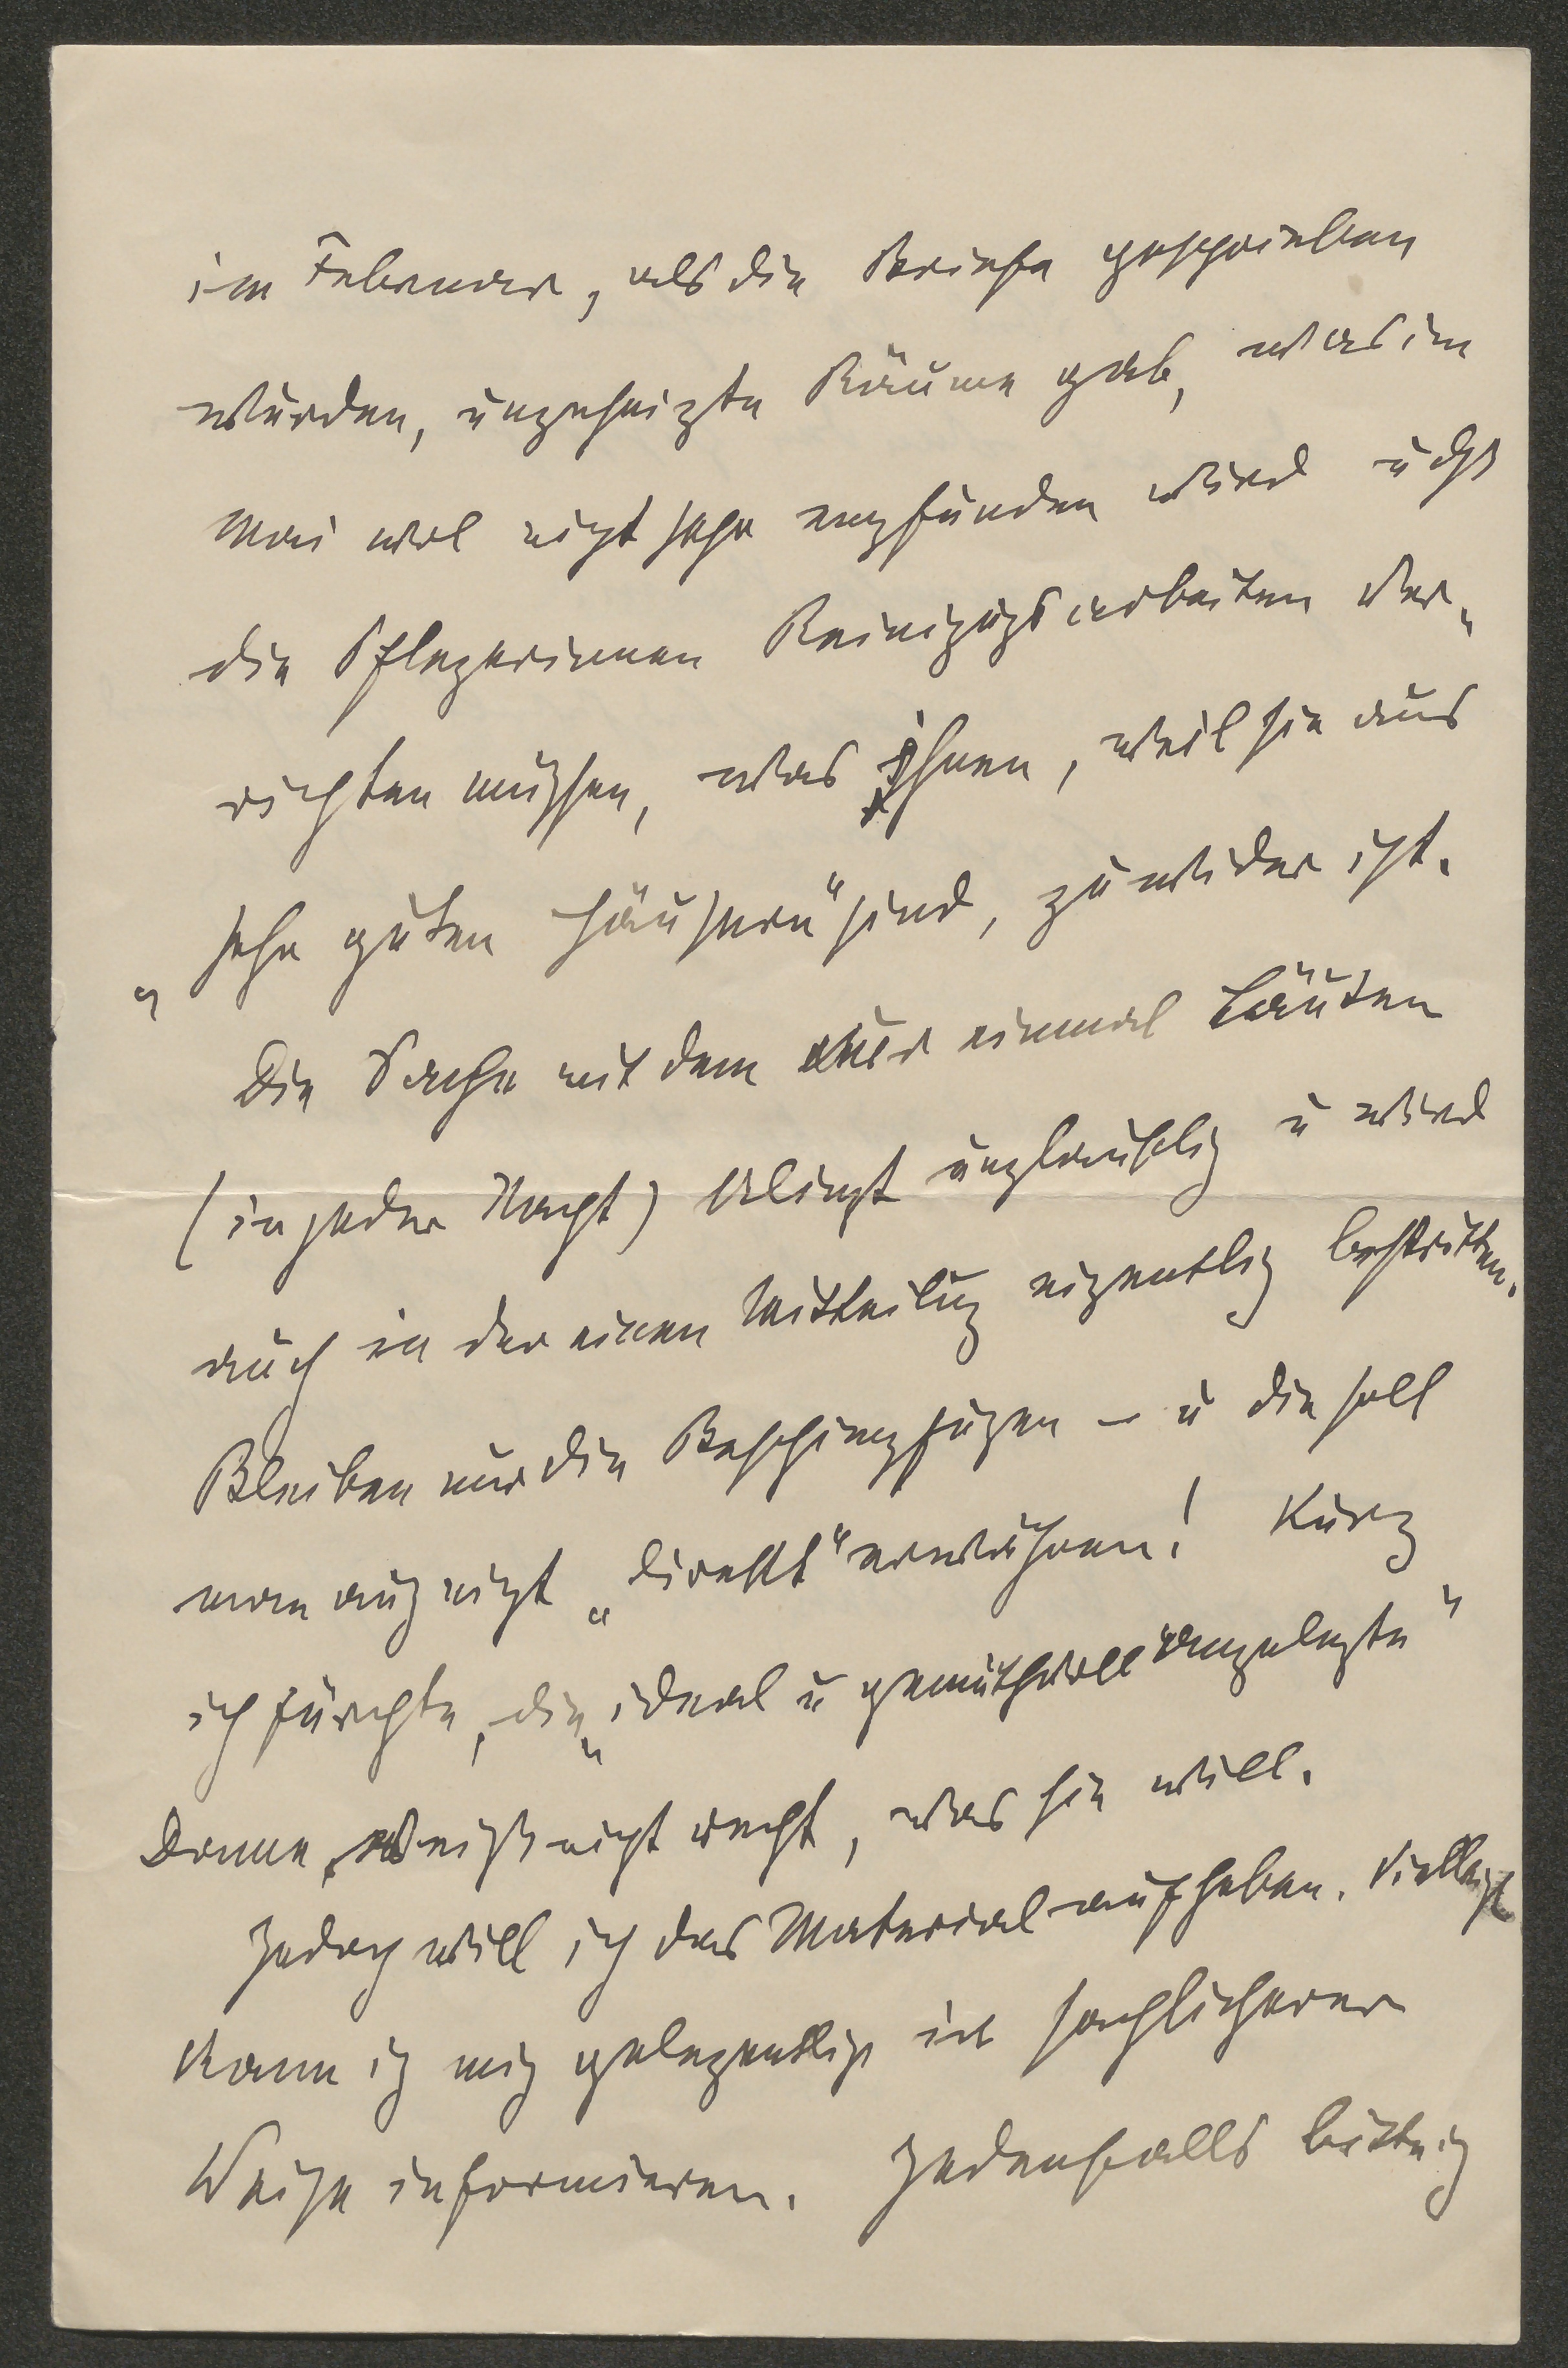 im Februar, als die Briefe geschrieben
wurden, ungeheizte Räume gab, was im
Mai wol nicht sehr empfunden wird u dß
die Pflegerinnen Reinigugsarbeiten ver-
richten müssen, was ihnen, weil sie aus
„sehr guten Häusern“ sind, zuwider ist.
Die Sache mit dem nur einmal Läuten
(in jeder Nacht) klingt unglaublich u wird
auch in der einen Mittheilung eigentlich bestritten.
Bleiben nur die Beschimpfugen – u die soll
man auch nicht „direkt“ erwähnen! Kurz
ich fürchte, die „ideal u gemüthvoll angelegte“
Dame weiß nicht recht, was sie will.
Jedoch will ich das Material aufheben. Vielleicht
kann ich mich gelegentlich in sachlicherer
Weise informieren. Jedenfalls bitte ich